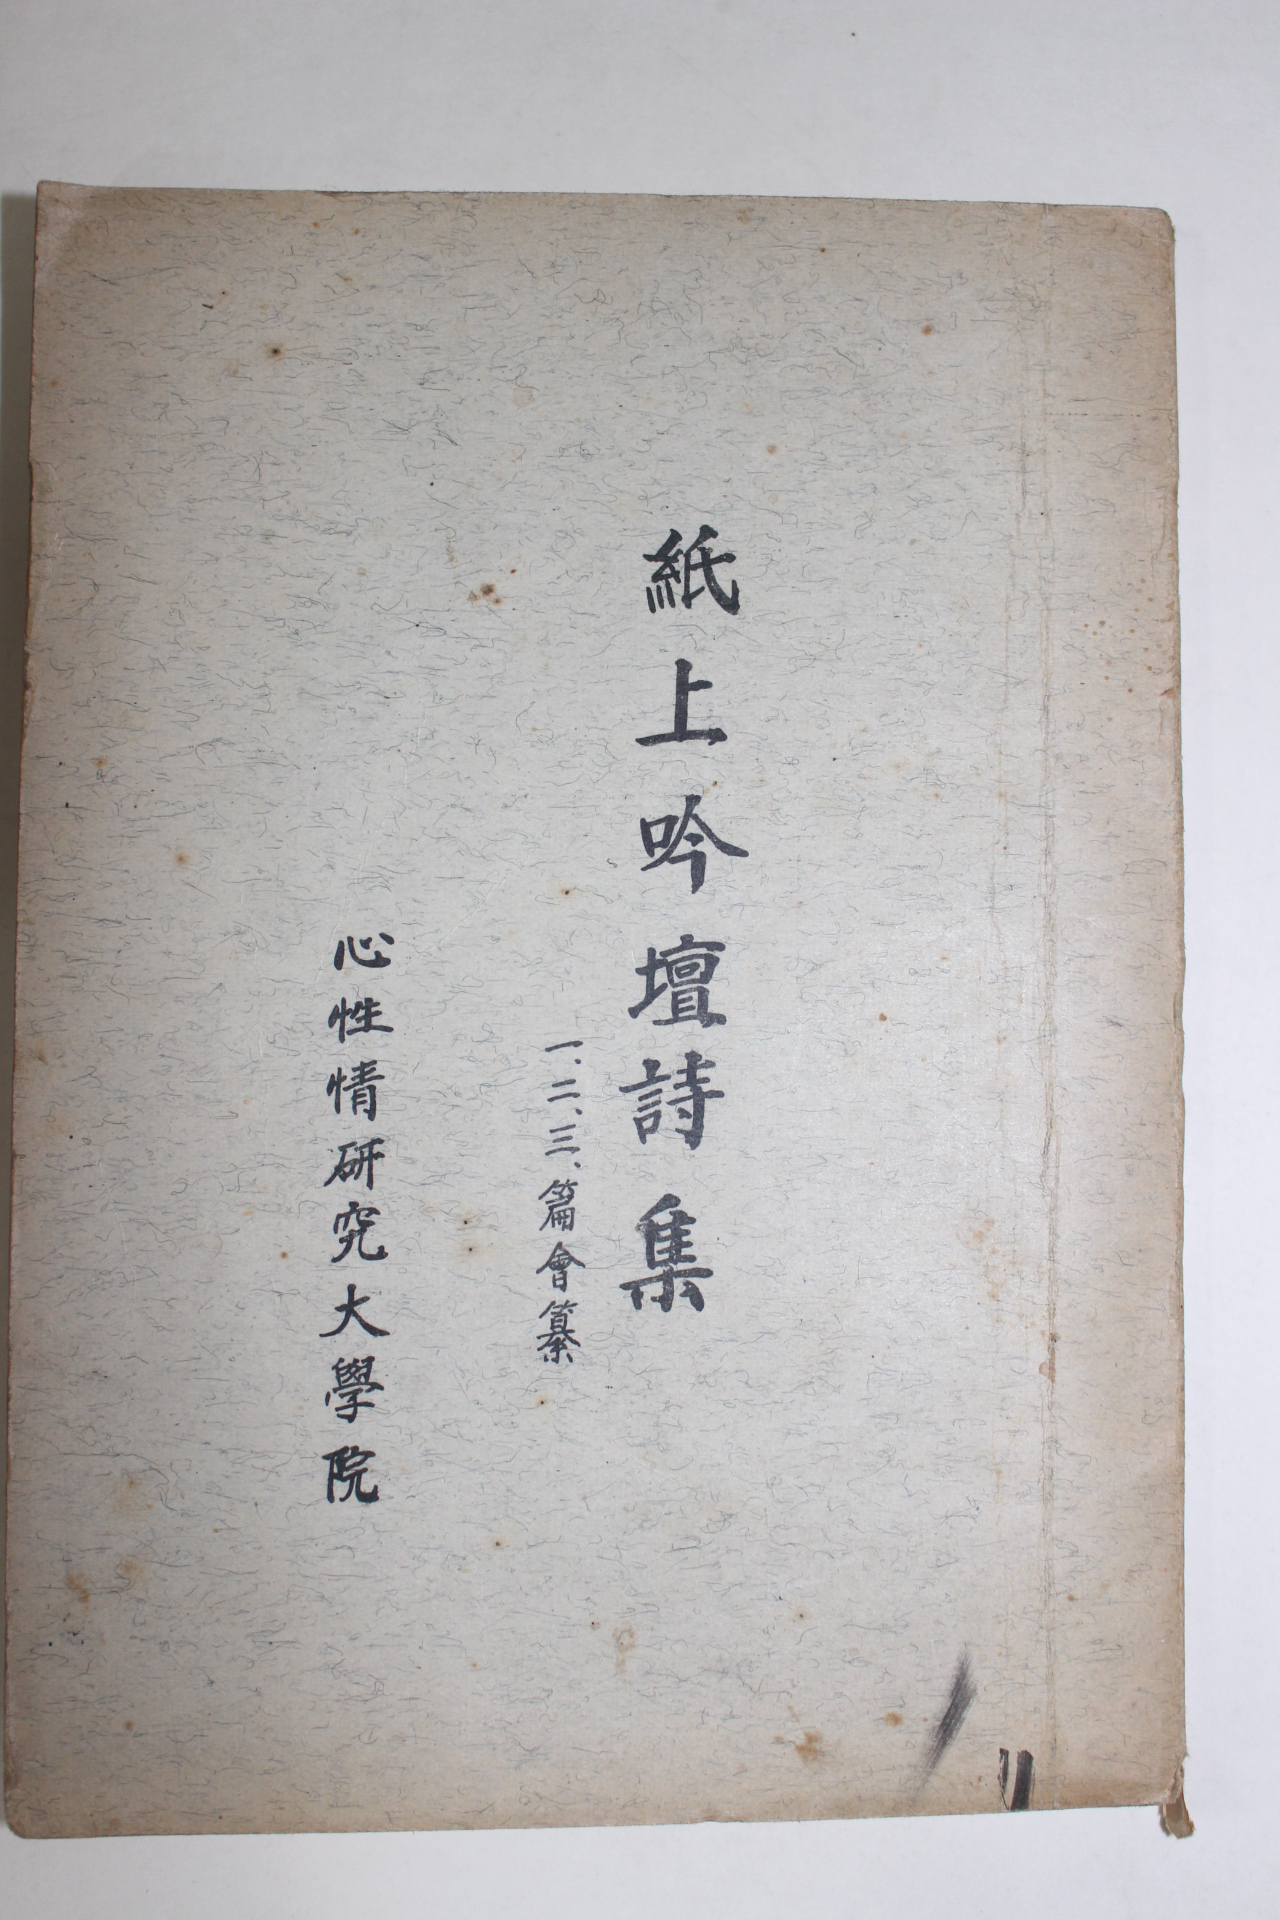 紙上吟壇詩集
一、二、三、篇會纂
心性情硏究大學院